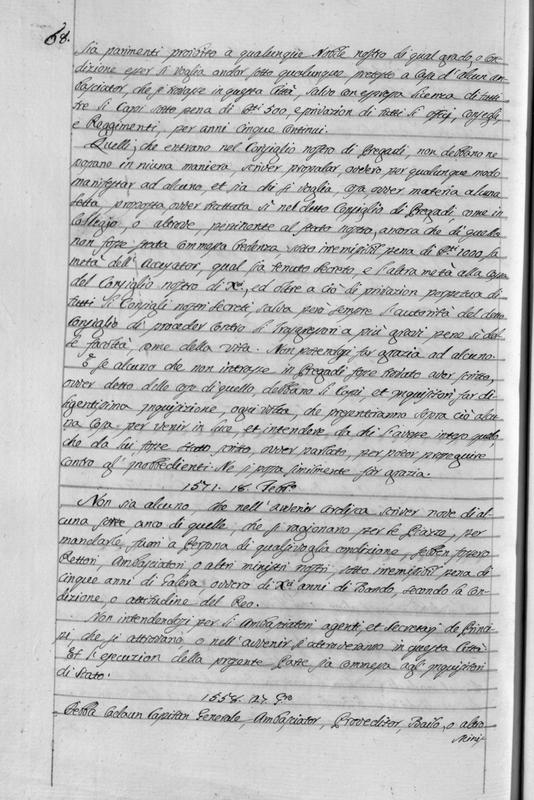 68.
Sia parimenti proibito a qualunque Nobile nostro di qual grado, o con-
dizione esser si voglia andar sotto qualunque pretesto a Casa d'alcun Am-
basciator, che si trovasse in questa Città, salvo con espressa licenza di tutti
tre li Capi sotto pena di D.ti 500, e privazion di tutti li offizj, Consegli,
e Reggimenti, per anni cinque continui.
Quelli, che entrano nel Consiglio nostro di Pregadi, non debbano ne
possano in niuna maniera, scriver propalar, ovvero per qualunque modo
manifestar ad alcuno, et sia chi si voglia, cosa ovver materia alcuna
detta, proposta, ovver trattata sì nel detto Consiglio di Pregadi, come in
Collegio, o altrove, pertinente al stato nostro, ancora che di quella
non fosse stata commessa Credenza, sotto irremissibil pena di D.ti 1000, la
metà dell' Accusator, qual sia tenuto secreto, e l'altra metà alla Cassa
del Consiglio nostro di X.ci, ed oltre a ciò di privazion perpetua di
tutti li Consigli nostri Secreti, salva però sempre l'autorità del detto
Consiglio di proceder contro li trasgressori a più gravi pene sì del-
le facoltà, come della vita. Non potendosi far grazia ad alcuno.
E se alcuno che non intrasse in Pregadi fosse trovato aver scritto,
ovver detto delle cose di quello, debbano li Capi, et Inquisitori far di-
ligentissima Inquisizione, ogni volta, che presentiranno sopra ciò alcu-
na cosa per venir in luce, et intendere da chi l'avesse inteso quello,
che da lui fosse stato scritto, ovver parlato, per poter proseguire
contro gl' inobbedienti. Ne si possa similmente far grazia.
1571. 18. Febr.o
Non sia alcuno, che nell' avvenir ardisca scriver nove di al-
cuna sorte anco di quelle, che si ragionano per le Piazze, per
mandarle fuori a Persona di qualsivoglia condizione, sebben fossero
Rettori, Ambasciatori, o altri ministri nostri sotto irremissibil pena di
cinque anni di Galera, ovvero di X.ci anni di Bando, secondo la con-
dizione, o attitudine del Reo.
Non intendendosi per li Ambasciatori agenti, et Secretarj de Princi-
pi, che si attrovano, o nell' avvenir si attroveranno in questa Città
Et l'esecuzion della presente Parte sia commessa agl' Inquisitori
di Stato.
1558. 27. G.o
Debba cadaun Capitan Generale, Ambasciator, Proveditor, Bailo, o altro
Mini-